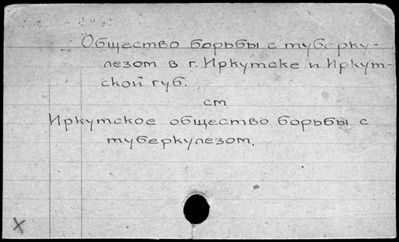 Общество борьбы с туберку-
лезом в г. Иркутске и Иркут-
ской губ.
см
Иркутское общество борьбы с
туберкулезом.
X